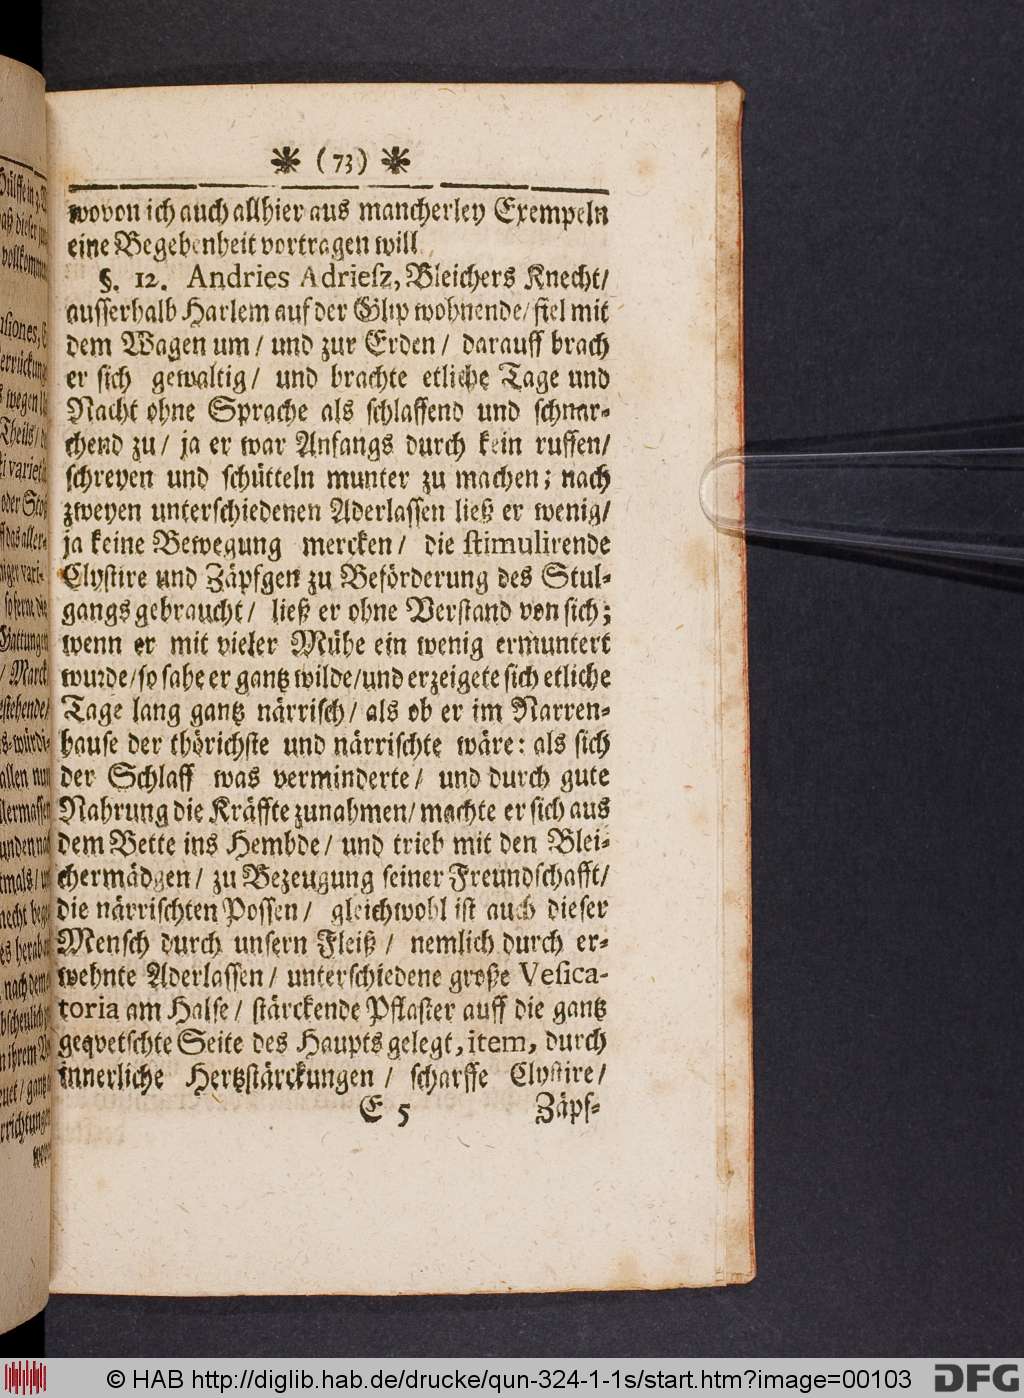 (73)
wovon ich auch allhier aus mancherley Exempeln
eine Begebenheit vortragen will.
§. 12. Andries Adriesz, Bleichers Knecht/
ausserhalb Harlem auf der Glip wohnende/ fiel mit
dem Wagen um/ und zur Erden/ darauff brach
er sich gewaltig/ und brachte etliche Tage und
Nacht ohne Sprache als schlaffend und schnar-
chend zu/ ja er war Anfangs durch kein ruffen/
schreyen und schütteln munter zu machen; nach
zweyen unterschiedenen Aderlassen ließ er wenig/
ja keine Bewegung mercken/ die stimulirende
Clystire und Zäpfgen zu Beförderung des Stul-
gangs gebraucht/ ließ er ohne Verstand von sich;
wenn er mit vieler Mühe ein wenig ermuntert
wurde/ so sahe er gantz wilde/ und erzeigete sich etliche
Tage lang gantz närrisch/ als ob er im Narren-
hause der thörichste und närrischte wäre: als sich
der Schlaff was verminderte/ und durch gute
Nahrung die Kräffte zunahmen/ machte er sich aus
dem Bette ins Hembde/ und trieb mit den Blei-
chermädgen/ zu Bezeugung seiner Freundschafft/
die närrischten Possen/ gleichwohl ist auch dieser
Mensch durch unsern Fleiß/ nemlich durch er-
wehnte Aderlassen/ unterschiedene große Vesica-
toria am Halse/ stärckende Pflaster auff die gantz
geqvetschte Seite des Haupts gelegt, item, durch
innerliche Hertzstärckungen/ scharffe Clystire/
E 5 Zäpf-
© HAB http://diglib.hab.de/drucke/qun-324-1-1s/start.htm?image=00103
DFG